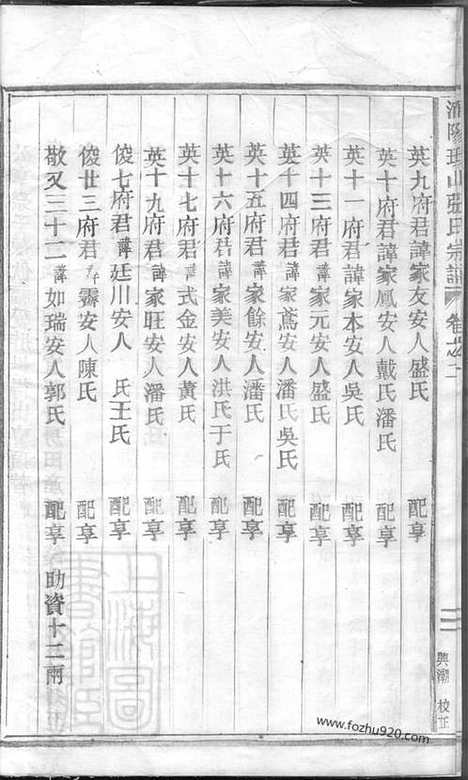 陽 山張氏宗譜 卷之二 三 興潮 校正
英九府君諱家友安人盛氏 配享
英十府君諱家鳳安人戴氏潘氏 配享
英十一府君諱家本安人吳氏 配享
英十三府君諱家元安人盛氏 配享
英十四府君諱家鳶安人潘氏吳氏 配享
英十五府君諱家餘安人潘氏 配享
英十六府君諱家美安人洪氏于氏 配享
英十七府君諱式金安人黃氏 配享
英十九府君諱家旺安人潘氏 配享
俊七府君諱廷川安人 氏王氏 配享
俊廿三府君 霽安人陳氏 配享
敬又三十二諱如瑞安人郭氏 配享 助資十二兩
上海圖書館藏
www.fozhu920.com